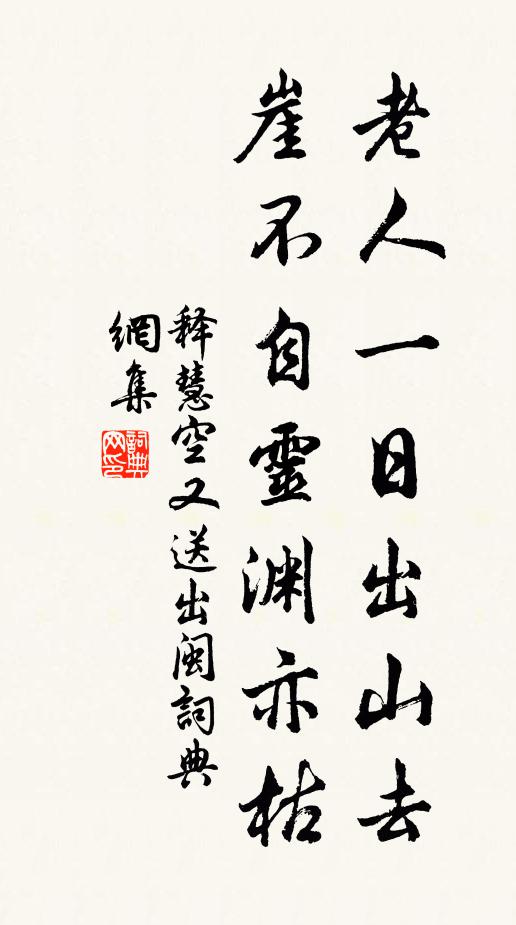 老人一日出山去
崖不自靈渊亦枯
释慧空又送出闽詞典
網集
詞典
网印